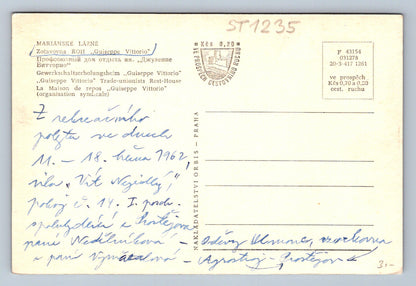 ST1235
MARIÁNSKE LÁZNE
Zotavovna ROH „Guiseppe Vittorio"
Профсоюзный дом отдыха им. „Джузеппе
Витторио"
Gewerkschaftserholungsheim „Guiseppe Vittorio"
„Guiseppe Vittorio" Trade-unionists Rest-House
La Maison de repos „Guiseppe Vittorio"
(organisation syndicale)
Kčs 0,20
VE PROSPĚCH CESTOVNÍHO RUCHU
P 43154
031278
20-3-417 1261
ve prospěch
Kčs 0,30 a 0,20
cest. ruchu
NAKLADATELSTVÍ ORBIS - PRAHA
Z rekreačního
pobytu ve dnech
11. - 18. března 1962,
vila „Vít Nejedlý",
pokoj č. 14. I. posch.
spolubydlící z Prostějova
paní Nedělníková -
a paní
Agrostroj - Prostějov
3.-